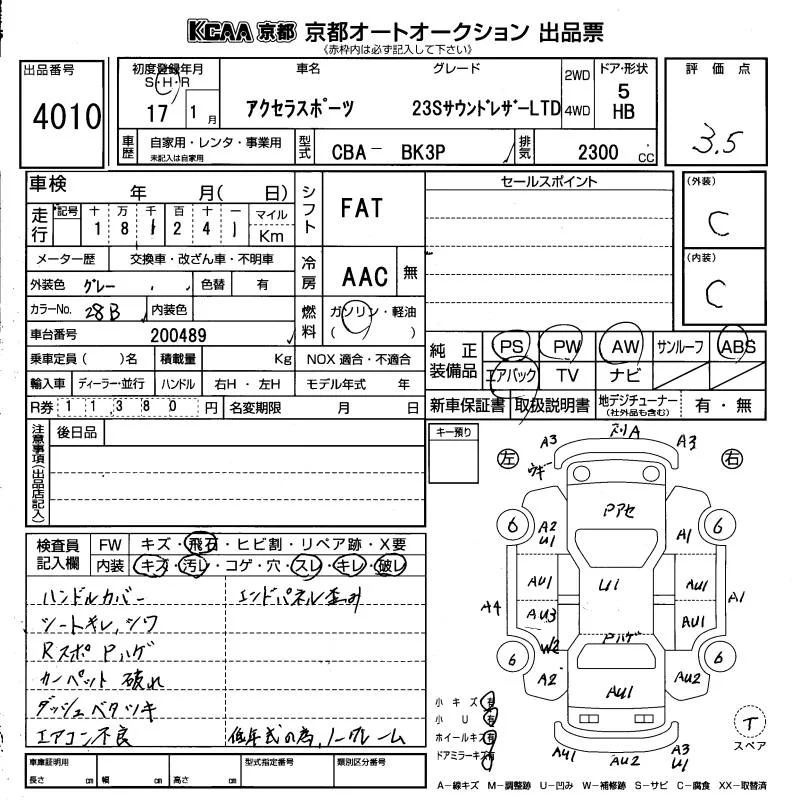 KCAA 京都 京都オートオークション 出品票
《赤枠内は必ず記入して下さい》
出品番号
4010
初度登録年月
S・H・R
17 1月
車名
アクセラスポーツ
グレード
23SサウンドレザーLTD
2WD
4WD
ドア・形状
5
HB
評価点
3.5
車歴
自家用・レンタ・事業用
未記入は自家用
型式
CBA－ BK3P
排気
2300 cc
車検 年 月( 日)
走行
記号 十 万 千 百 十 一 マイル
1 8 1 2 4 1 Km
メーター歴 交換車・改ざん車・不明車
外装色 グレー 色替 有
カラーNo. 28B 内装色
車台番号 200489
乗車定員( )名 積載量 Kg NOX 適合・不適合
輸入車 ディーラー・並行 ハンドル 右H・左H モデル年式 年
R券 11,380 円 名変期限 月 日
シフト FAT
冷房 AAC 無
燃料 ガソリン・軽油
( )
セールスポイント
(外装)
C
(内装)
C
純正装備品
PS PW AW サンルーフ ABS
エアバック TV ナビ
新車保証書 取扱説明書 地デジチューナー(社外品も含む) 有・無
注意事項(出品店記入)
後日品
キー預り
検査員記入欄
FW キズ・飛石・ヒビ割・リペア跡・X要
内装 キズ・汚レ・コゲ・穴・スレ・キレ・破レ
ハンドルカバー エンドパネル歪み
シートキレ,シワ
Rスポ Pハゲ
カーペット 破れ
ダッシュベタツキ
エアコン不良 低年式の為,ノークレーム
車庫証明用
長さ cm 幅 cm 高さ cm
型式指定番号
類別区分番号
左 右
A3 A A3
Pアセ
6 6
A2
U1
A1
AU1 U1 AU1
A4 AU3 AU1 A1
W2 Pハゲ
6 6
A2 AU1 AU2
小キズ 有
小U 有
ホイールキズ 有
ドアミラーキズ 有
AU1 AU2 A3
U1
T
スペア
A－線キズ M－調整跡 U－凹み W－補修跡 S－サビ C－腐食 XX－取替済